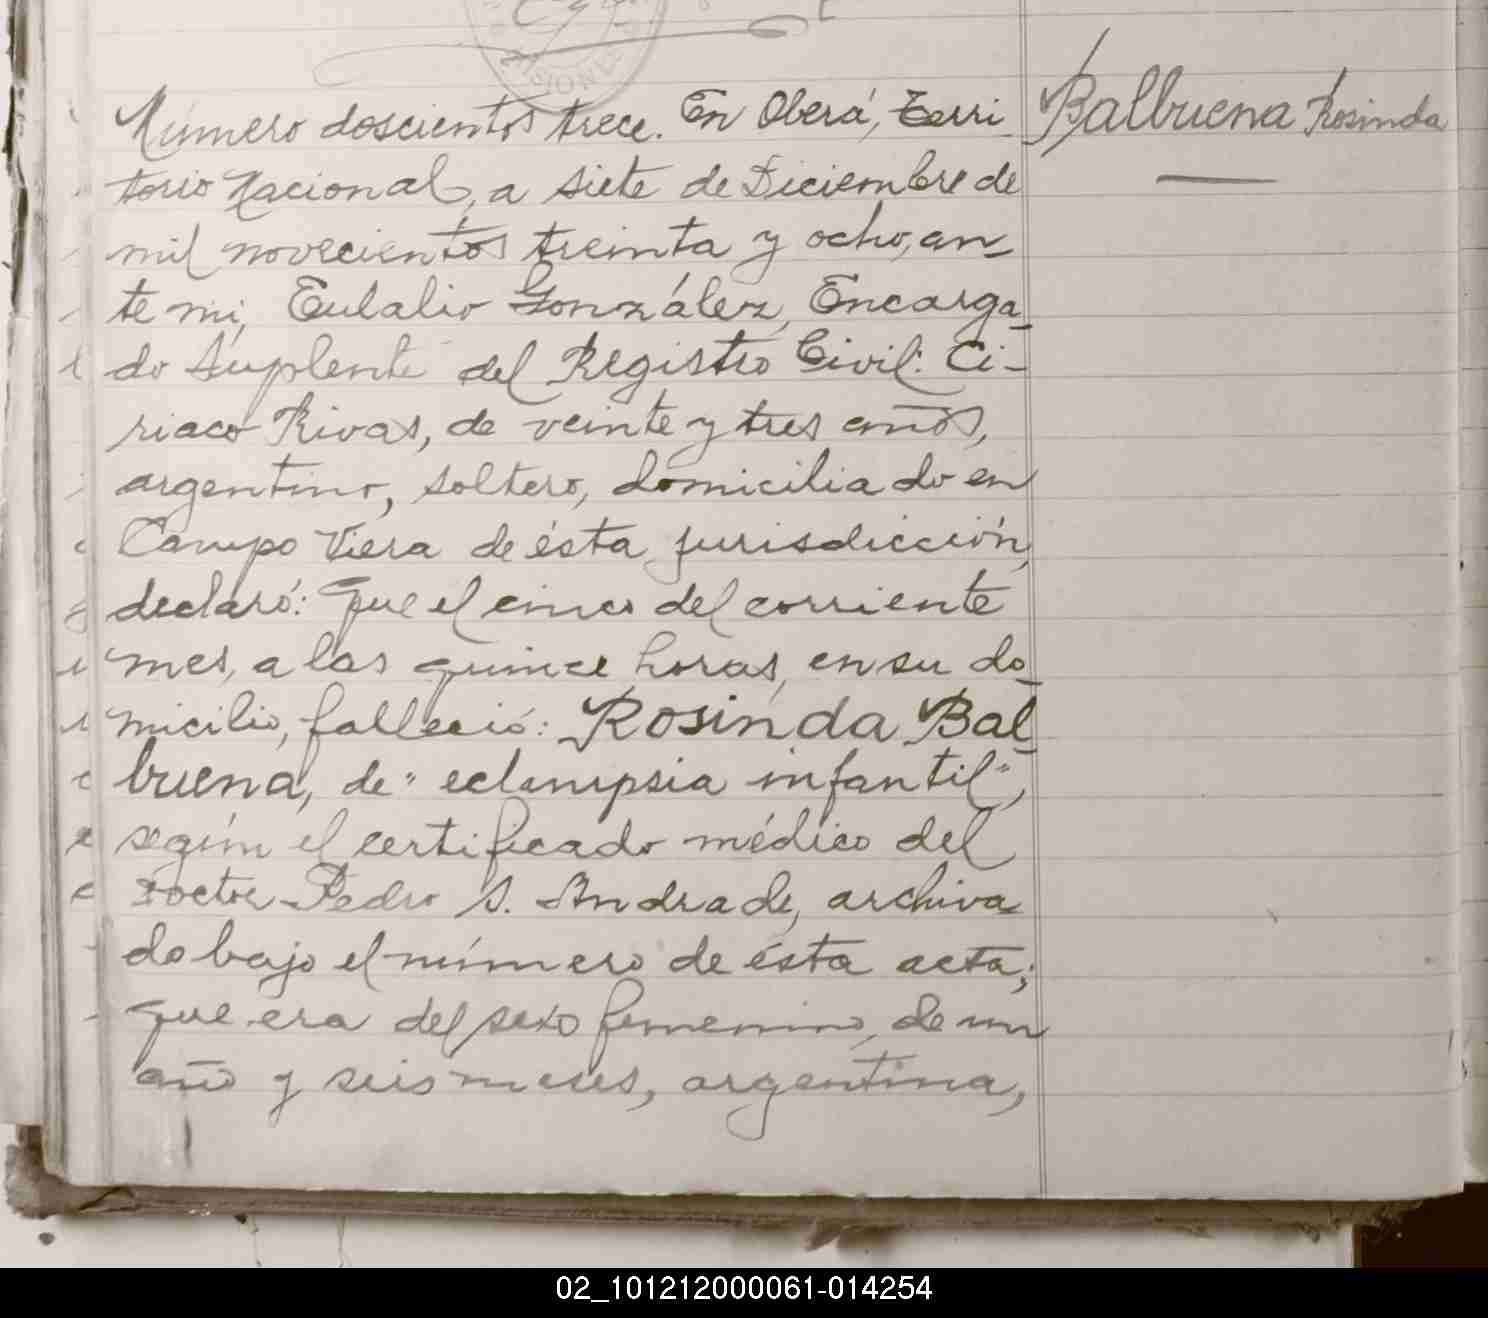 MISIONES
Número doscientos trece. En Oberá, Terri
torio Nacional, a siete de Diciembre de
mil novecientos treinta y ocho, an-
te mí, Eulalio González, Encarga-
do Suplente del Registro Civil: Ci-
riaco Rivas, de veinte y tres años,
argentino, soltero, domiciliado en
Campo Viera de ésta jurisdicción,
declaró: Que el cinco del corriente
mes, a las quince horas, en su do-
micilio, falleció: Rosinda Bal-
buena, de "eclampsia infantil",
según el certificado médico del
Doctor Pedro S. Andrade, archiva-
do bajo el número de ésta acta;
que era del sexo femenino, de un
año y seis meses, argentina,
Balbuena Rosinda
02_101212000061-014254